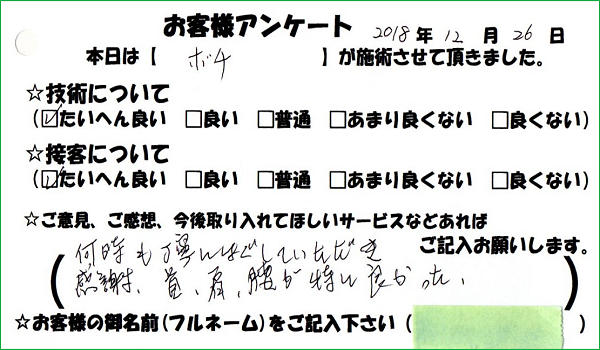 お客様アンケート 2018年12月26日
本日は【 ボチ 】が施術させて頂きました。
☆技術について
(☑たいへん良い □良い □普通 □あまり良くない □良くない)
☆接客について
(☑たいへん良い □良い □普通 □あまり良くない □良くない)
☆ご意見、ご感想、今後取り入れてほしいサービスなどあれば
ご記入お願いします。
(何時も丁寧にほぐしていただき
感謝、首、肩、腰が特に良かった、)
☆お客様の御名前(フルネーム)をご記入下さい( )